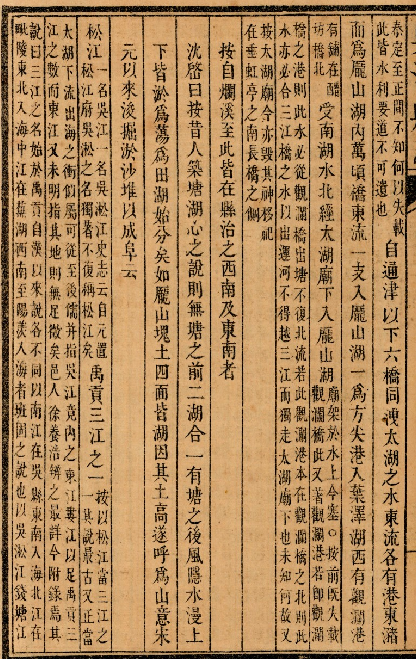 泰定至正間不知何以失載
此皆水利要道不可遺也
自通津以下六橋同洩太湖之水東流各有港東瀦
而為龐山湖內萬頃蕩東流一支入龐山湖一為方尖港入葉澤湖西有觀瀾港
有鋪在醋
坊橋北
受南湖水北經太湖廟下入龐山湖
廟架於水上今塞○按前既失載
觀瀾橋此又著觀瀾港若卽觀瀾
橋之港則此水必從觀瀾橋出塘不復北流若此觀瀾港本在觀瀾橋之北則此
水亦必合三江橋之水以出運河不得越三江而獨走太湖廟下也未知何故又
按太湖廟今亦毀其神移祀
在垂虹亭之南長橋之側
按自爛溪至此皆在縣治之西南及東南者
沈啓曰按昔人築塘湖心之說則無塘之前二湖合一有塘之後風隱水漫上
下皆淤為蕩為田湖始分矣如龐山塊土四面皆湖因其土高遂呼為山意宋
元以來浚掘淤沙堆以成阜云
松江
一名吳江一名吳淞江史志云自元置
松江府吳淞之名獨著不復稱松江矣
禹貢三江之一
按以松江當三江之
一其說最古又正當
太湖下流出海之衝似屬可從至後儒并指吳江境內之東江婁江以足禹貢三
江之數而東江又未明指其地則無足徵矣邑人徐養浩辨之最詳今附錄焉其
說曰三江之名始於禹貢自漢以來說各不同以南江在吳縣東南入海北江在
毗陵東北入海中江在蕪湖西南至陽羨入海者班固之說也以吳淞江錢塘江